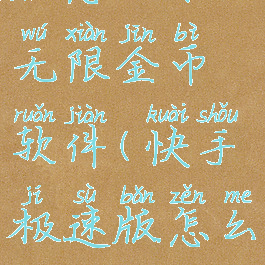 wú xiàn jīn bì
无限金币
ruǎn jiàn kuài shǒu
软件(快手
jí sù bǎn zěn me
极速版怎么